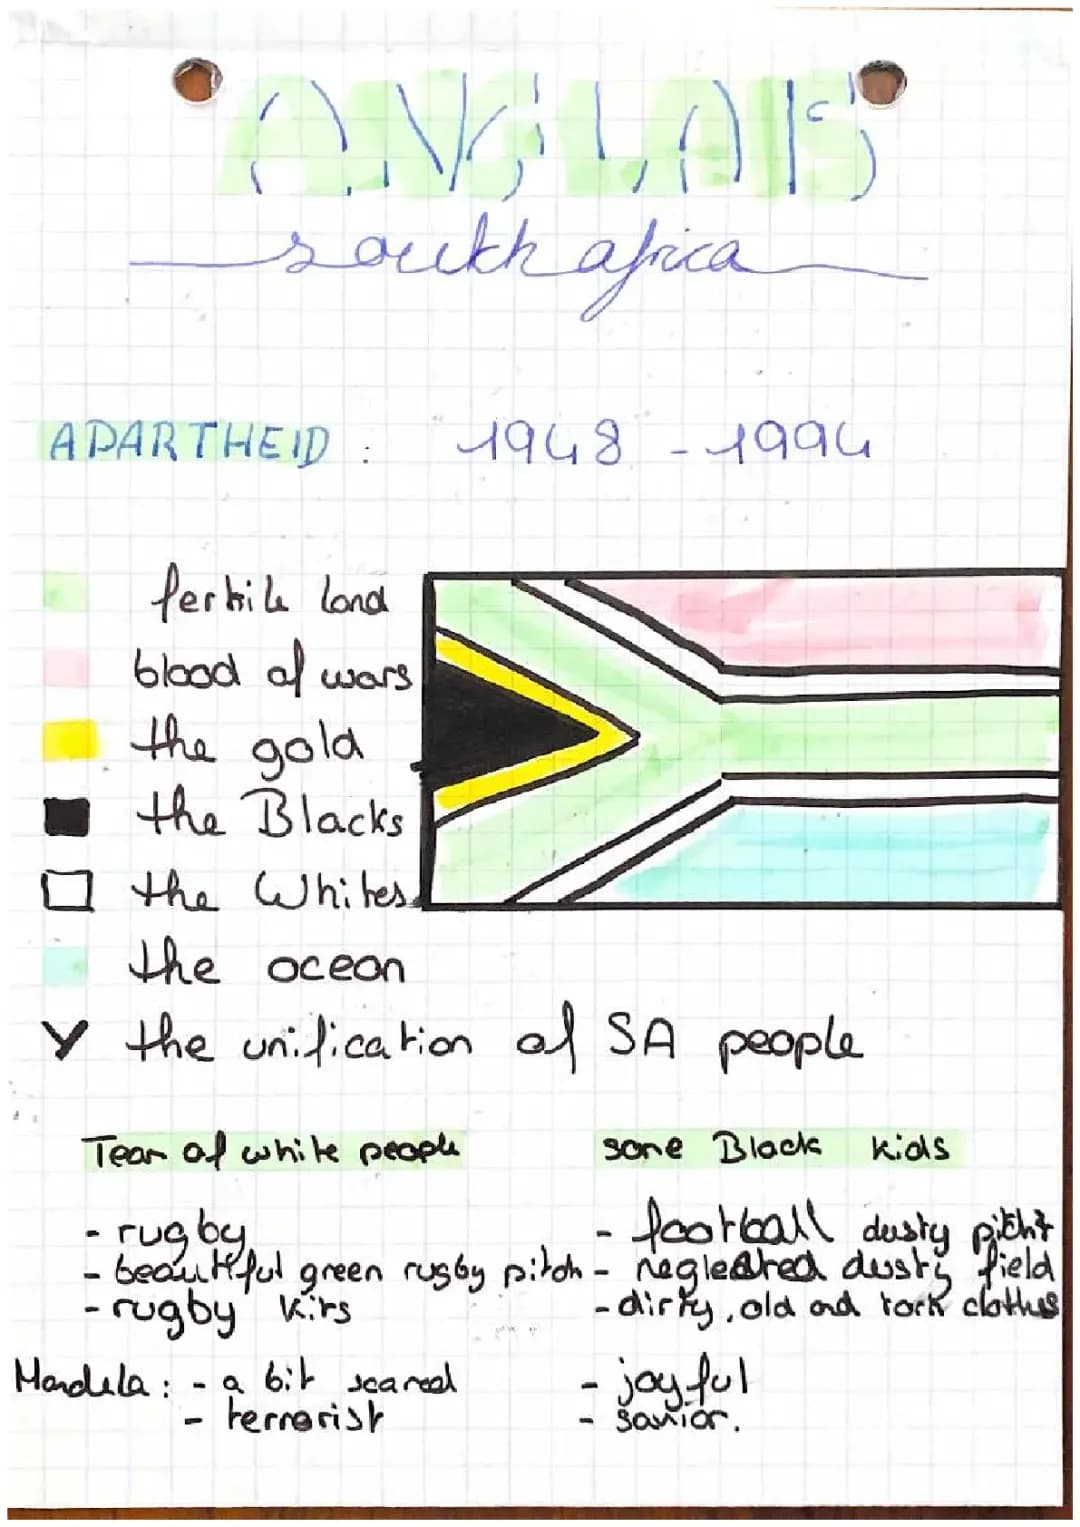 ANGLAIS
south africa
APARTHEID : 1948 - 1994
fertile land
blood of wars
the gold
the Blacks
the Whites
the ocean
Y the unification of SA people
Team of white people
- rugby
- beautiful green rugby pitch
- rugby kits
some Black kids
- football dusty pitch
- neglected dusty field
- dirty, old and tork clothes
Mandela : - a bit scared
- terrorist
- joyful
- savior.